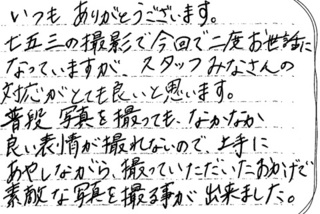 いつも ありがとうございます。
七五三の撮影で今回で二度お世話に
なっていますが、スタッフみなさんの
対応がとても良いと思います。
普段 写真を撮っても、なかなか
良い表情が撮れないので、上手に
あやしながら、撮っていただいたおかげで
素敵な写真を撮る事が出来ました。